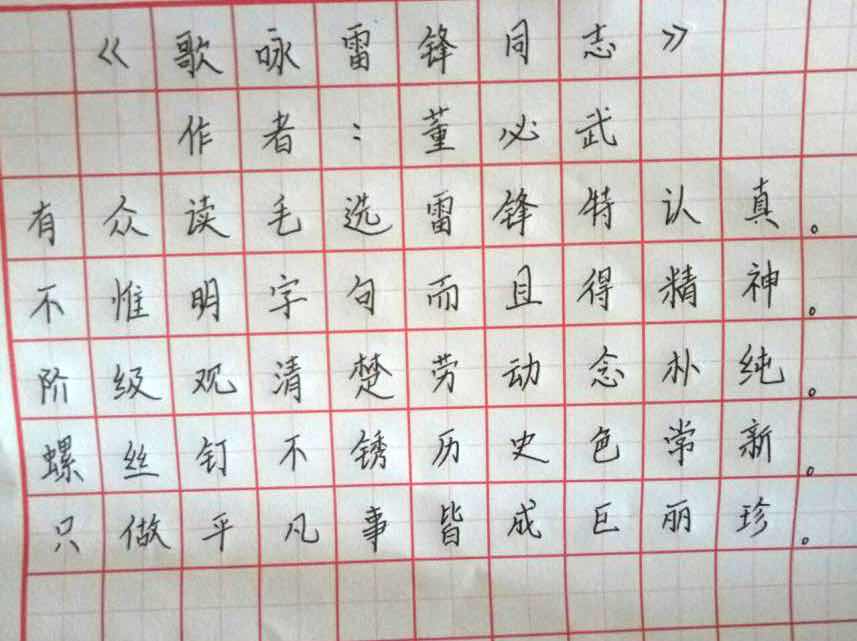 《歌咏雷锋同志》
作者：董必武
有众读毛选雷锋特认真。
不惟明字句而且得精神。
阶级观清楚劳动念朴纯。
螺丝钉不锈历史色常新。
只做平凡事皆成巨丽珍。